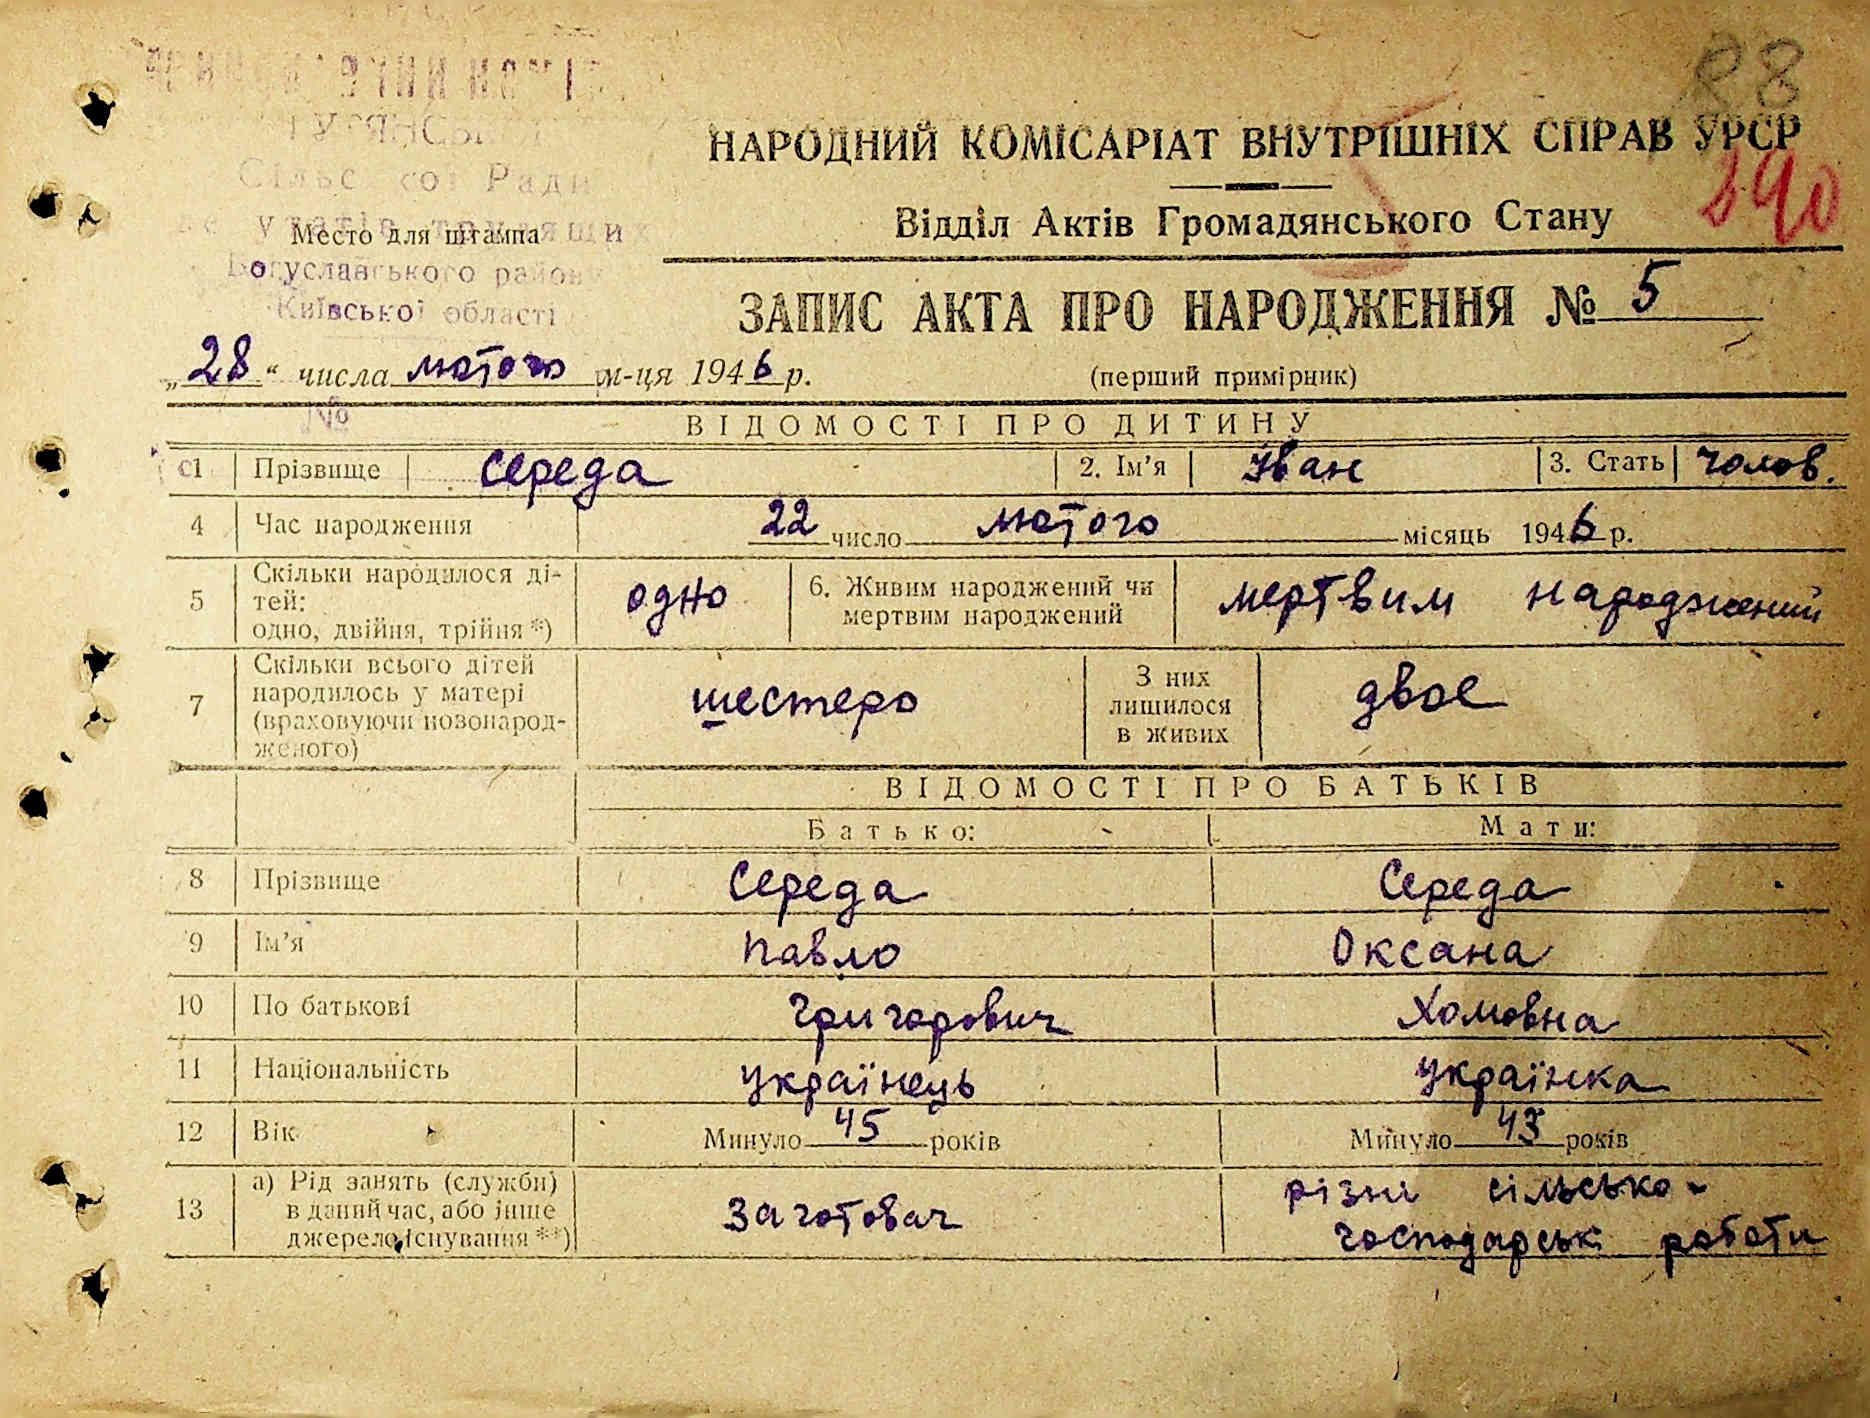 88
НАРОДНИЙ КОМІСАРІАТ ВНУТРІШНІХ СПРАВ УРСР
190
Сільської Ради
Место для штампа
Відділ Актів Громадянського Стану
депутатів трудящих
Богуславського району
Київської області
ЗАПИС АКТА ПРО НАРОДЖЕННЯ № 5
„28“ числа лютого м-ця 1946 р.
(перший примірник)
№
ВІДОМОСТІ ПРО ДИТИНУ
1 Прізвище Середа 2. Ім’я Іван 3. Стать чолов.
4 Час народження 22 число лютого місяць 1946 р.
5 Скільки народилося ді-
тей:
одно, двійня, трійня *) одно 6. Живим народжений чи
мертвим народжений мертвим народжений
7 Скільки всього дітей
народилось у матері
(враховуючи новонарод-
женого) шестеро З них
лишилося
в живих двоє
ВІДОМОСТІ ПРО БАТЬКІВ
Батько: Мати:
8 Прізвище Середа Середа
9 Ім’я Павло Оксана
10 По батькові Григорович Хомовна
11 Національність українець українка
12 Вік Минуло 45 років Минуло 43 років
13 а) Рід занять (служби)
в даний час, або інше
джерело існування **) Заготовач різні сільсько-
господарськ роботи